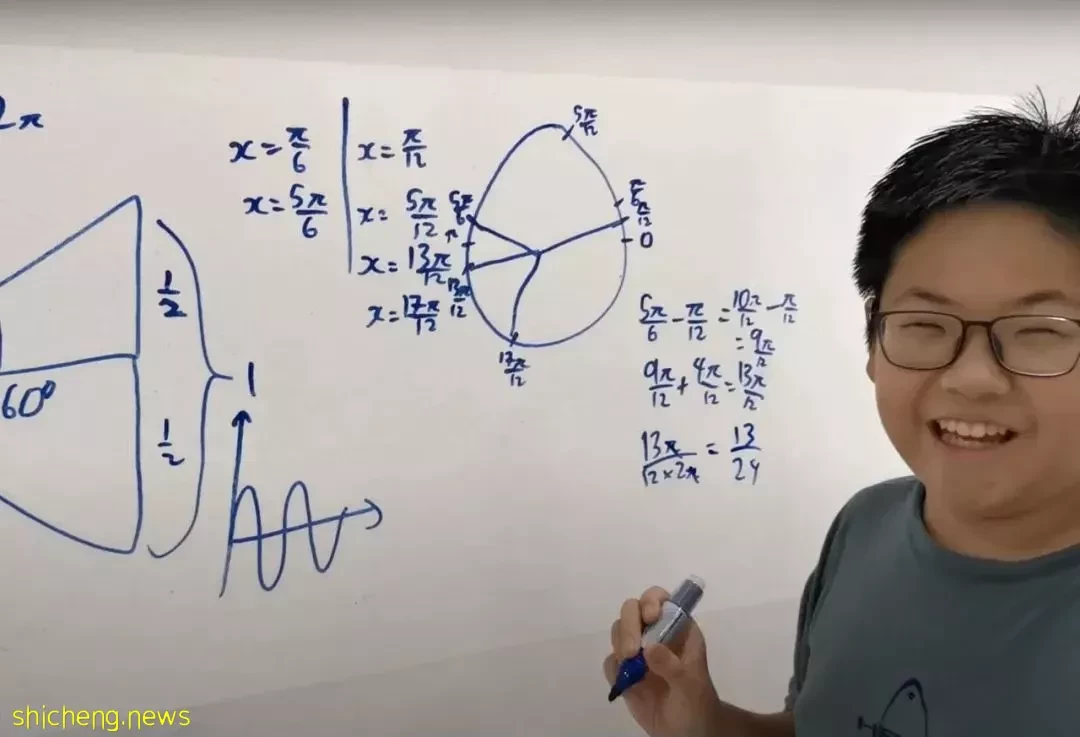 2π
x = π/6
x = 5π/6
x = π/12
x = 5π/12
x = 13π/12
x = 17π/12
5π/12
π/6
π/12
0
5π/6
π
13π/12
17π/12
1/2
1/2
1
60°
5π/6 - π/12 = 10π/12 - π/12
= 9π/12
9π/12 + 4π/12 = 13π/12
13π/12×2π = 13/24
shicheng.news